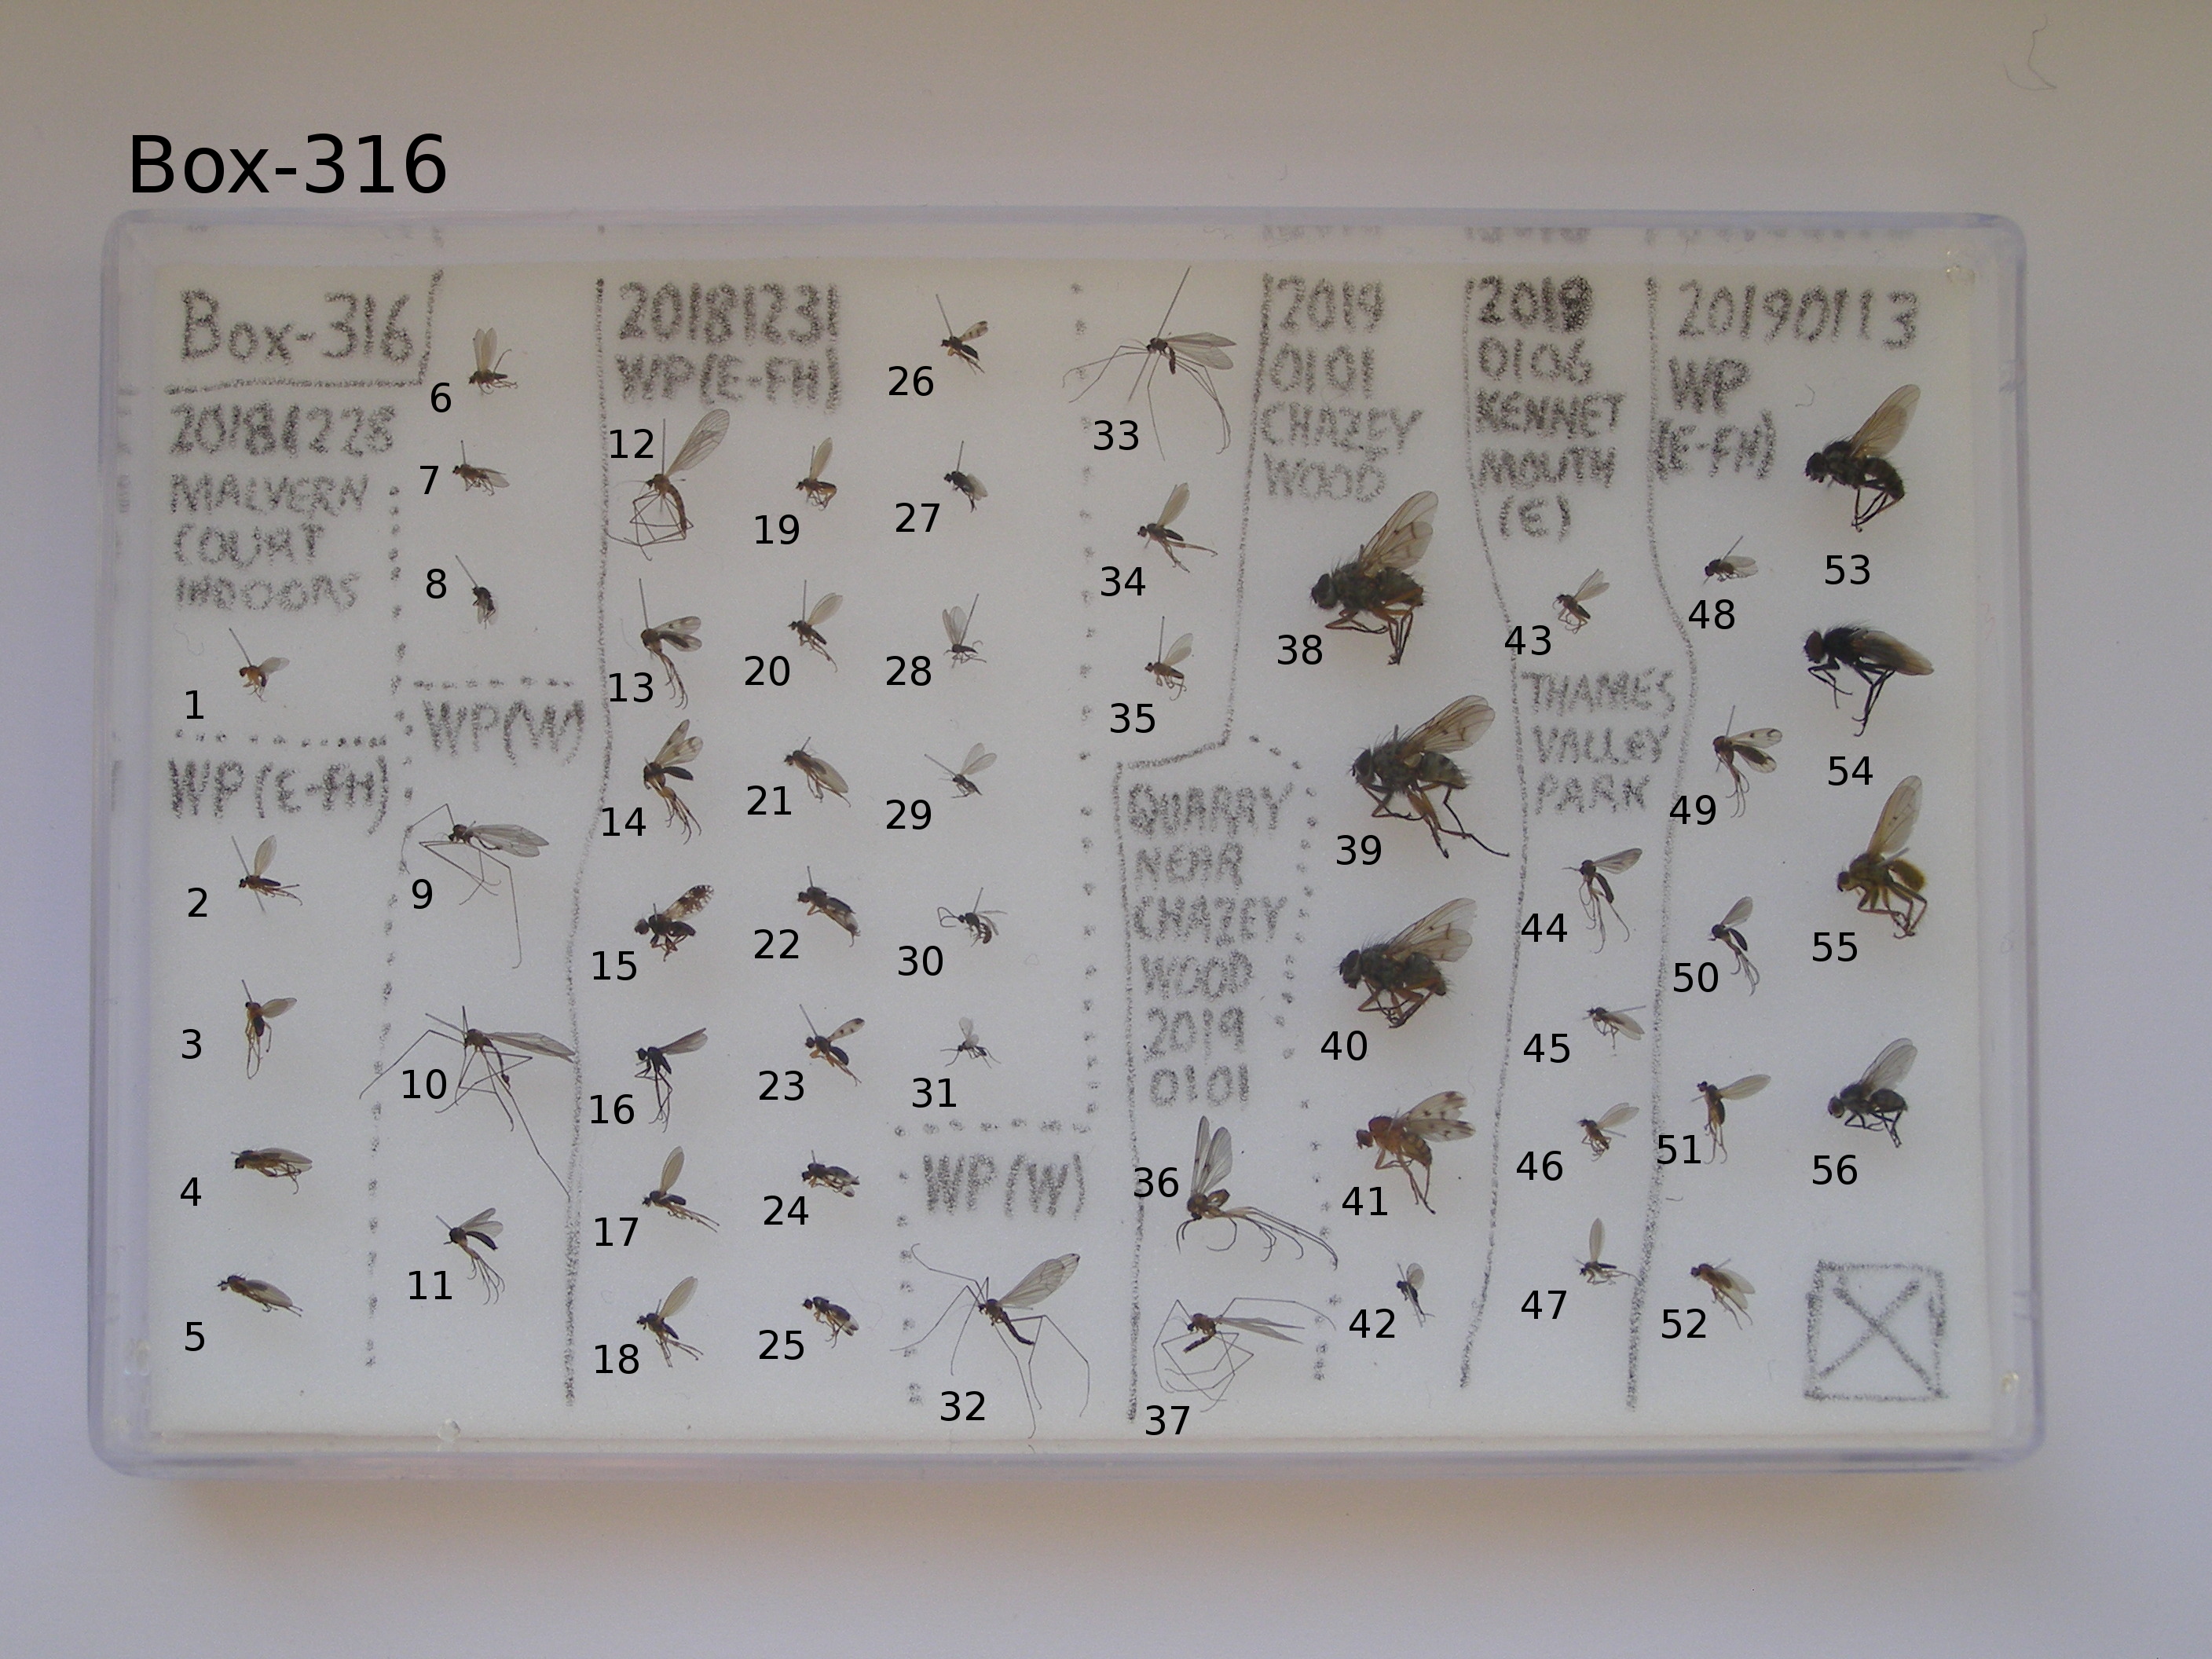 Box-316
Box-316
20181228
MALVERN
COURT
INDOORS
1
WP(E-FH)
2
3
4
5
6
7
8
WP(W)
9
10
11
20181231
WP(E-FH)
12
13
14
15
16
17
18
19
20
21
22
23
24
25
26
27
28
29
30
31
WP(W)
32
33
34
35
QUARRY
NEAR
CHAZEY
WOOD
2019
0101
36
37
2019
0101
CHAZEY
WOOD
38
39
40
41
42
2019
0106
KENNET
MOUTH
(E)
43
THAMES
VALLEY
PARK
44
45
46
47
20190113
WP
(E-FH)
48
49
50
51
52
53
54
55
56